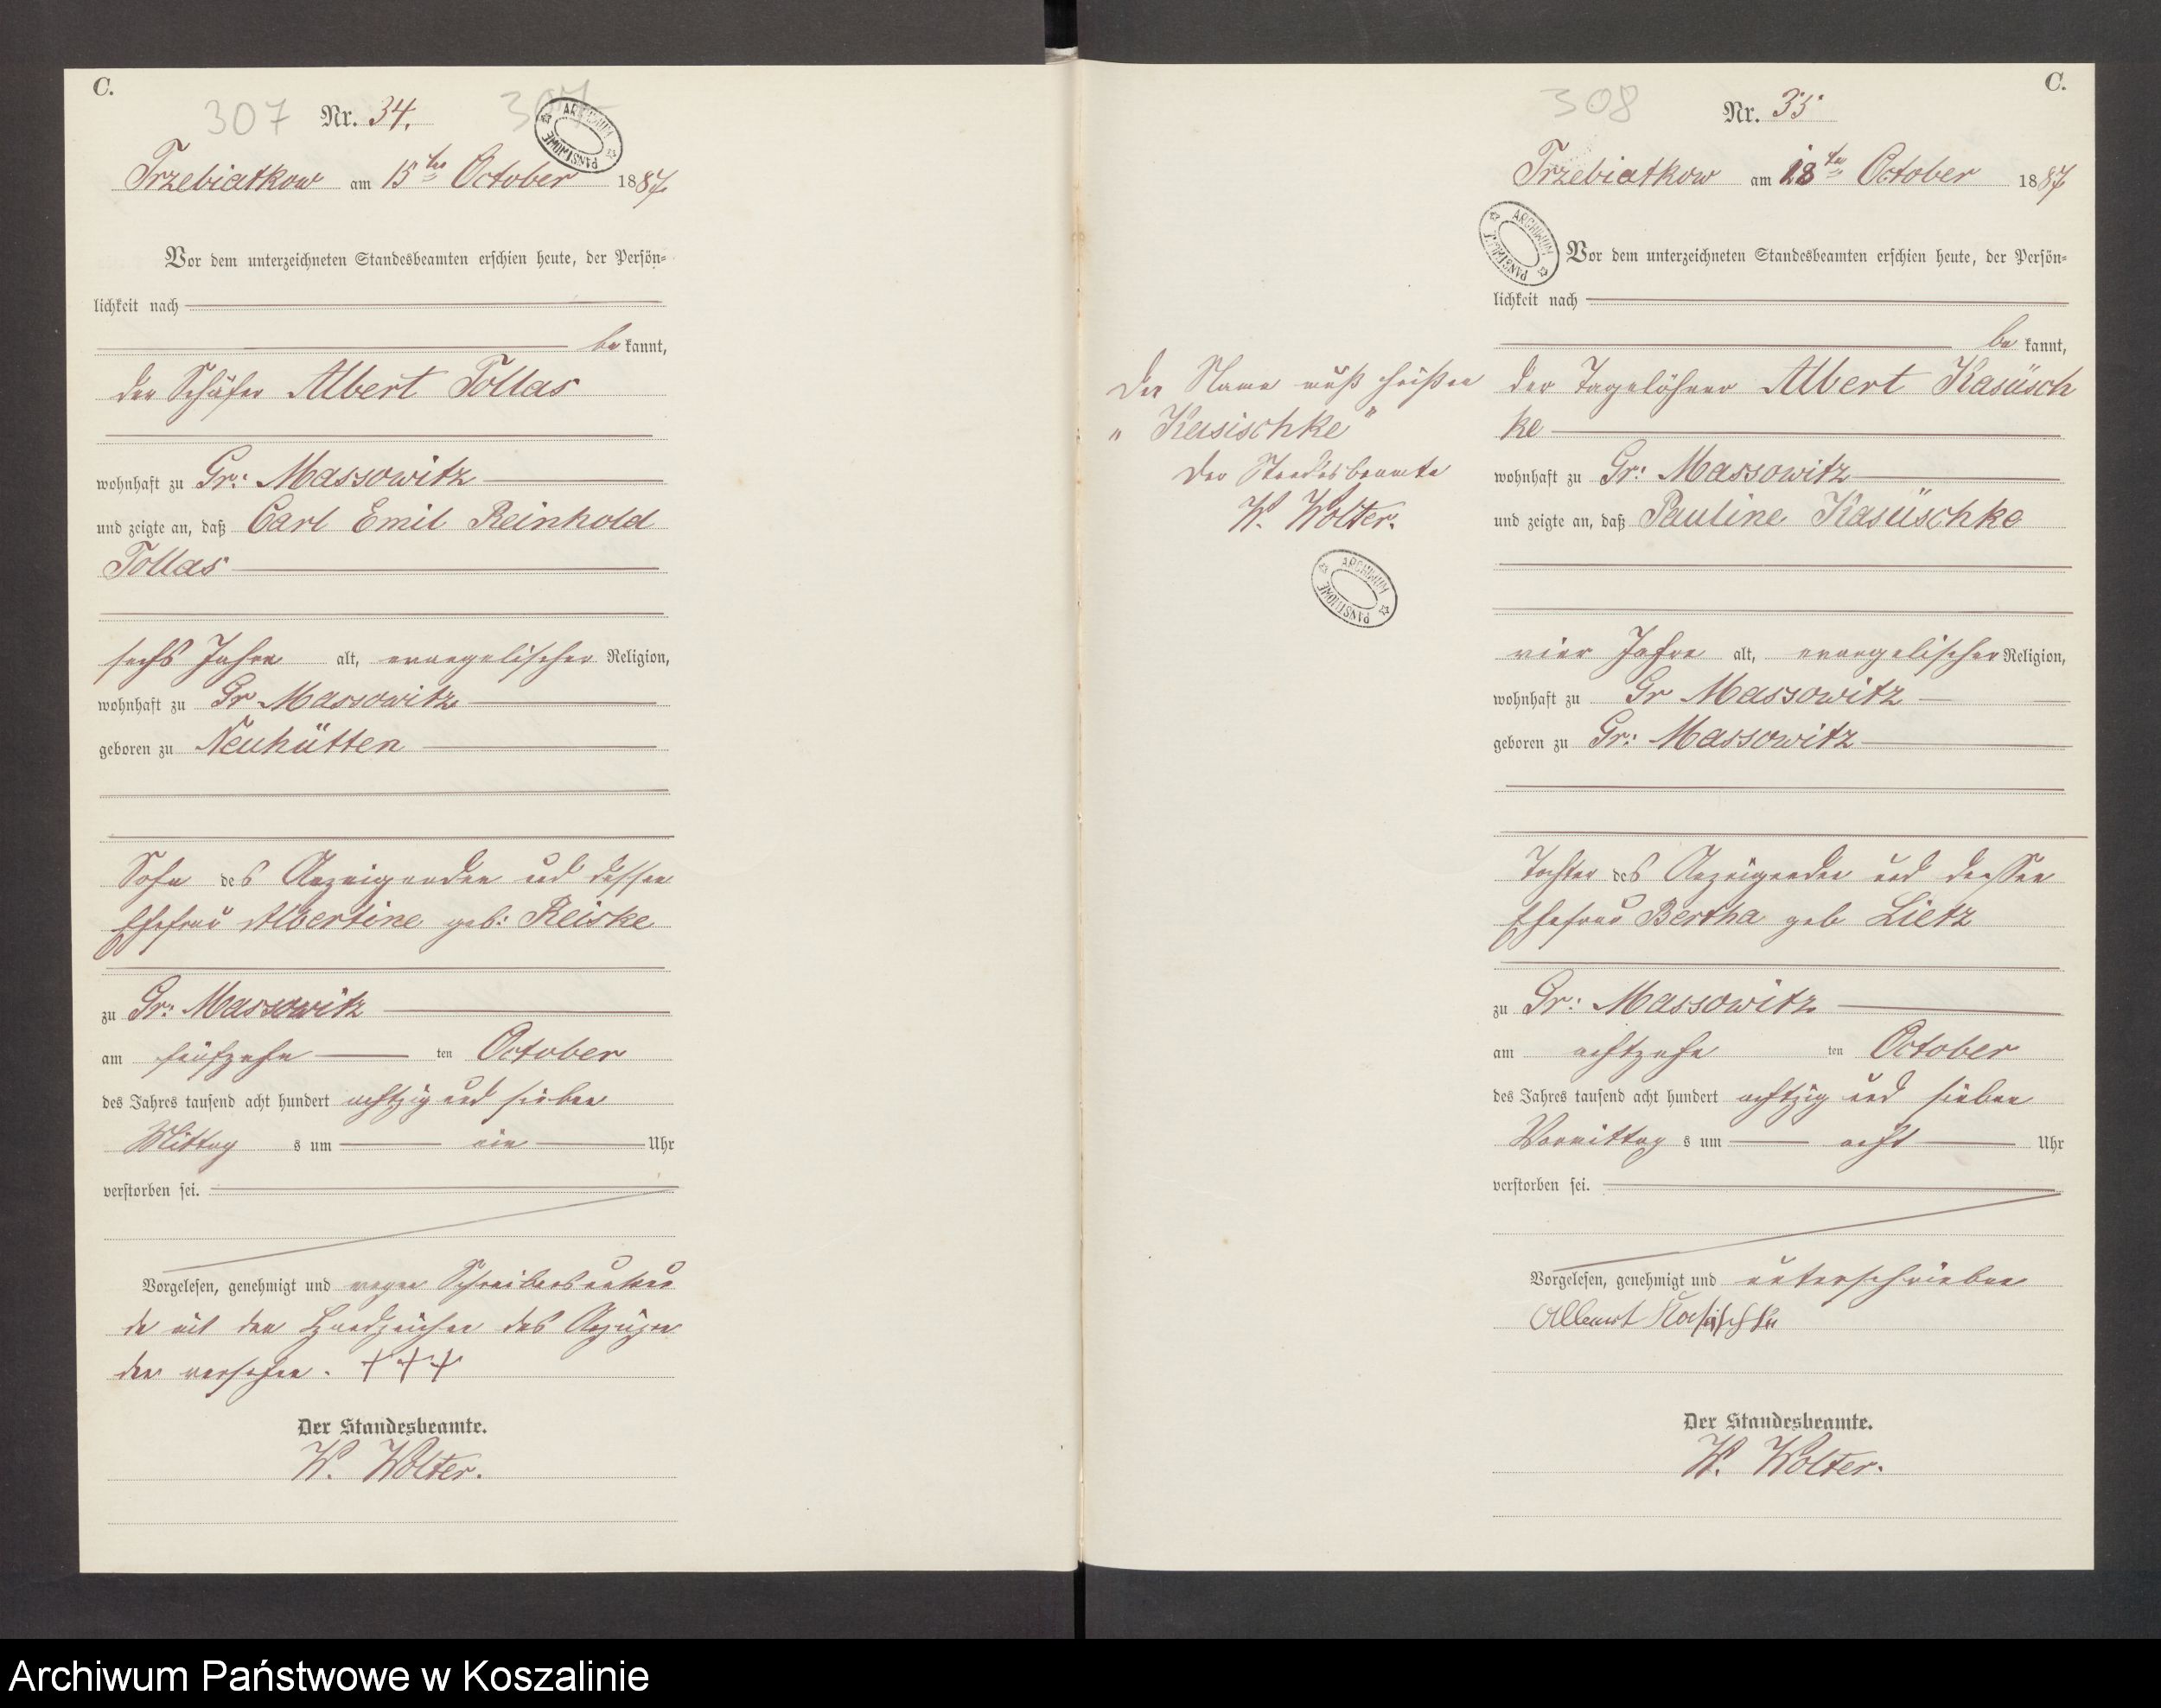 C.
307 Nr. 34. 307
ARCHIWUM PAŃSTWOWE
Trzebiatkow am 15ten October 1887
Vor dem unterzeichneten Standesbeamten erschien heute, der Persön-
lichkeit nach
be kannt,
der Schäfer Albert Tollas
wohnhaft zu Gr: Massowitz
und zeigte an, daß Carl Emil Reinhold
Tollas
sechs Jahre alt, evangelischer Religion,
wohnhaft zu Gr Massowitz
geboren zu Neuhütten
Sohn des Anzeigenden und dessen
Ehefrau Albertine geb: Reiske
zu Gr: Massowitz
am fünfzehn ten October
des Jahres tausend acht hundert achtzig und sieben
Mittag s um ein Uhr
verstorben sei.
Vorgelesen, genehmigt und wegen Schreibensunkun
de mit den Handzeichen des Anzeigen
den versehen. +++
Der Standesbeamte.
W. Wolter.
C.
308 Nr. 35
Trzebiatkow am 18ten October 1887
ARCHIWUM PAŃSTWOWE
Vor dem unterzeichneten Standesbeamten erschien heute, der Persön-
lichkeit nach
be kannt,
der Tagelöhner Albert Kasüsch
ke
wohnhaft zu Gr: Massowitz
und zeigte an, daß Pauline Kasüschke
vier Jahre alt, evangelischer Religion,
wohnhaft zu Gr Massowitz
geboren zu Gr: Massowitz
Tochter des Anzeigenden und dessen
Ehefrau Bertha geb Lietz
zu Gr: Massowitz
am achtzehn ten October
des Jahres tausend acht hundert achtzig und sieben
Vormittag s um acht Uhr
verstorben sei.
Vorgelesen, genehmigt und unterschrieben
Albert Kasischke
Der Standesbeamte.
W. Wolter.
Der Name muß heißen
"Kasischke"
Der Standesbeamte
W. Wolter.
ARCHIWUM PAŃSTWOWE
Archiwum Państwowe w Koszalinie